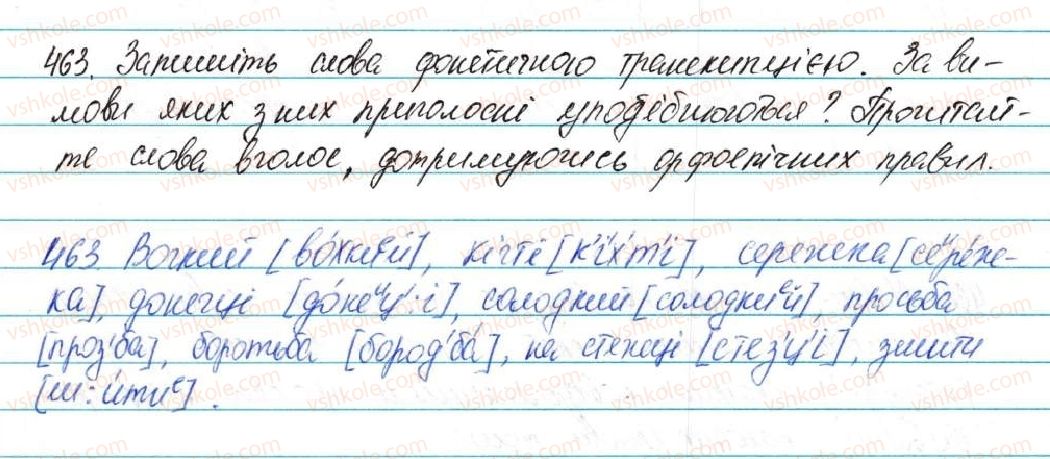 463. Запишіть слова фонетичного транскипцією. За ви-
мови яких з них приголосні уподібнюються? Прочитай-
те слова вголос, дотримуючись орфоепічних правил.
463. Вогкий [во́хкиᵉй], кігті [к'і́хт'і], сережка [сеᵎре́ж-
ка], донечці [до́неᵎц':і], солодкий [солодкиᵉй], просьба
[проз'ба], боротьба [бород'ба́], на стежці [стез'ц'і], зшити
[ш:и́тиᵉ].